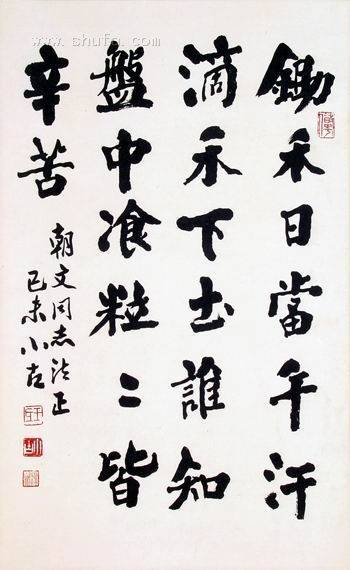 www.shufa.com
鋤禾日當午汗
滴禾下土誰知
盤中飡粒〻皆
辛苦
朝文同志法正
己未小古